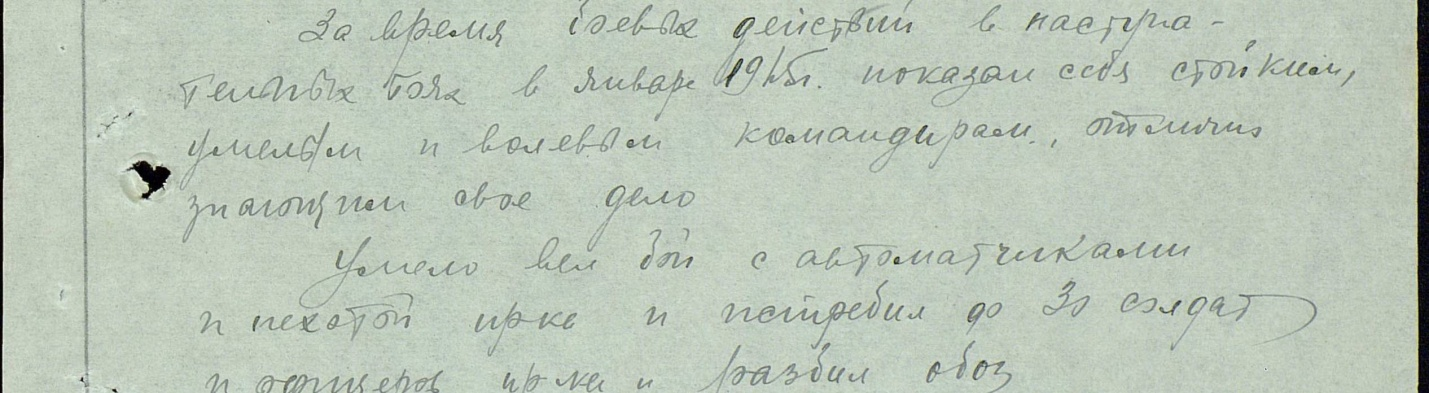 За время боевых действий в наступа-
тельных боях в январе 1945г. показал себя стойким,
умелым и волевым командирам., отлично
знающим свое дело
Умело вел бой с автоматчиками
и пехотой пр-ка и истребил до 30 солдат
и офицеров пр-ка и разбил обоз